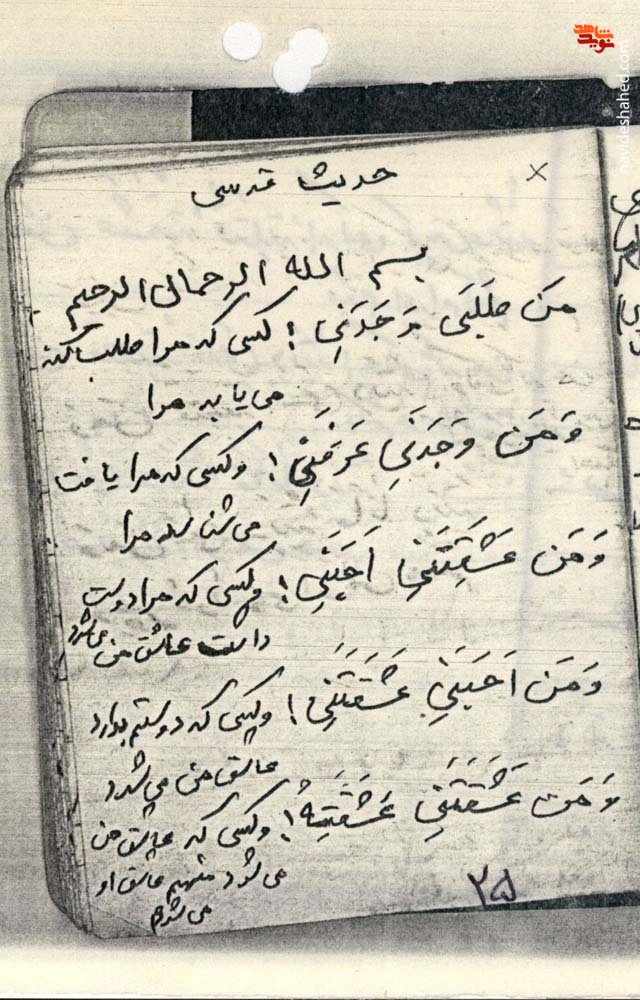 نوید شاهد
navideshahed.com
حدیث قدسی
بسم الله الرحمان الرحیم
مَن طَلَبَنی وَجَدَنِی ؛ کسی که مرا طلب کند
می یابد مرا
وَ مَن وَجَدَنِی عَرَفَنِی ؛ و کسی که مرا یافت
می شناسد مرا
وَ مَن عَشَقِتَنِی اَحَبَنِی ؛ و کسی که مرا دوست
داشت عاشق من می شود
وَ مَن اَحَبَنِی عَشَقَتَنِی ؛ و کسی که دوستم بدارد
عاشق من می شود
وَ مَن عَشَقَتَنِی عَشَقتِهُ ؛ و کسی که عاشق من
می شود منهم عاشق او
می شوم
۲۵